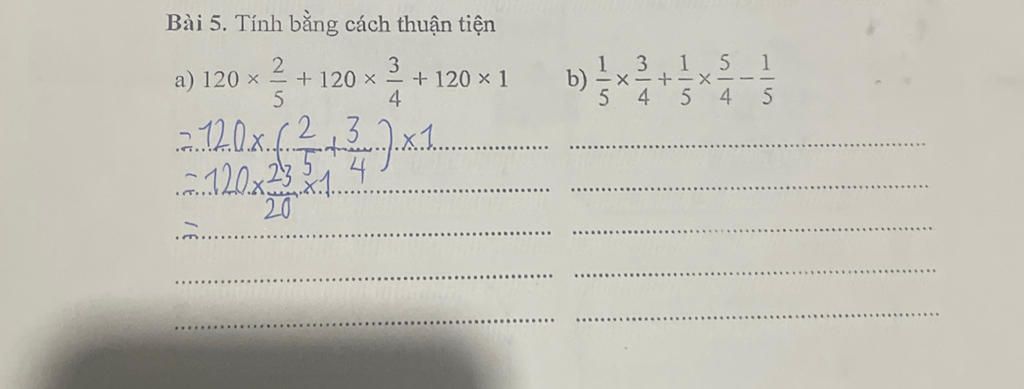 Bài 5. Tính bằng cách thuận tiện
a) 120 × 2/5 + 120 × 3/4 + 120 × 1
b) 1/5 × 3/4 + 1/5 × 5/4 − 1/5
= 120 × (2/5 + 3/4) × 1
= 120 × 23/20 × 1
=